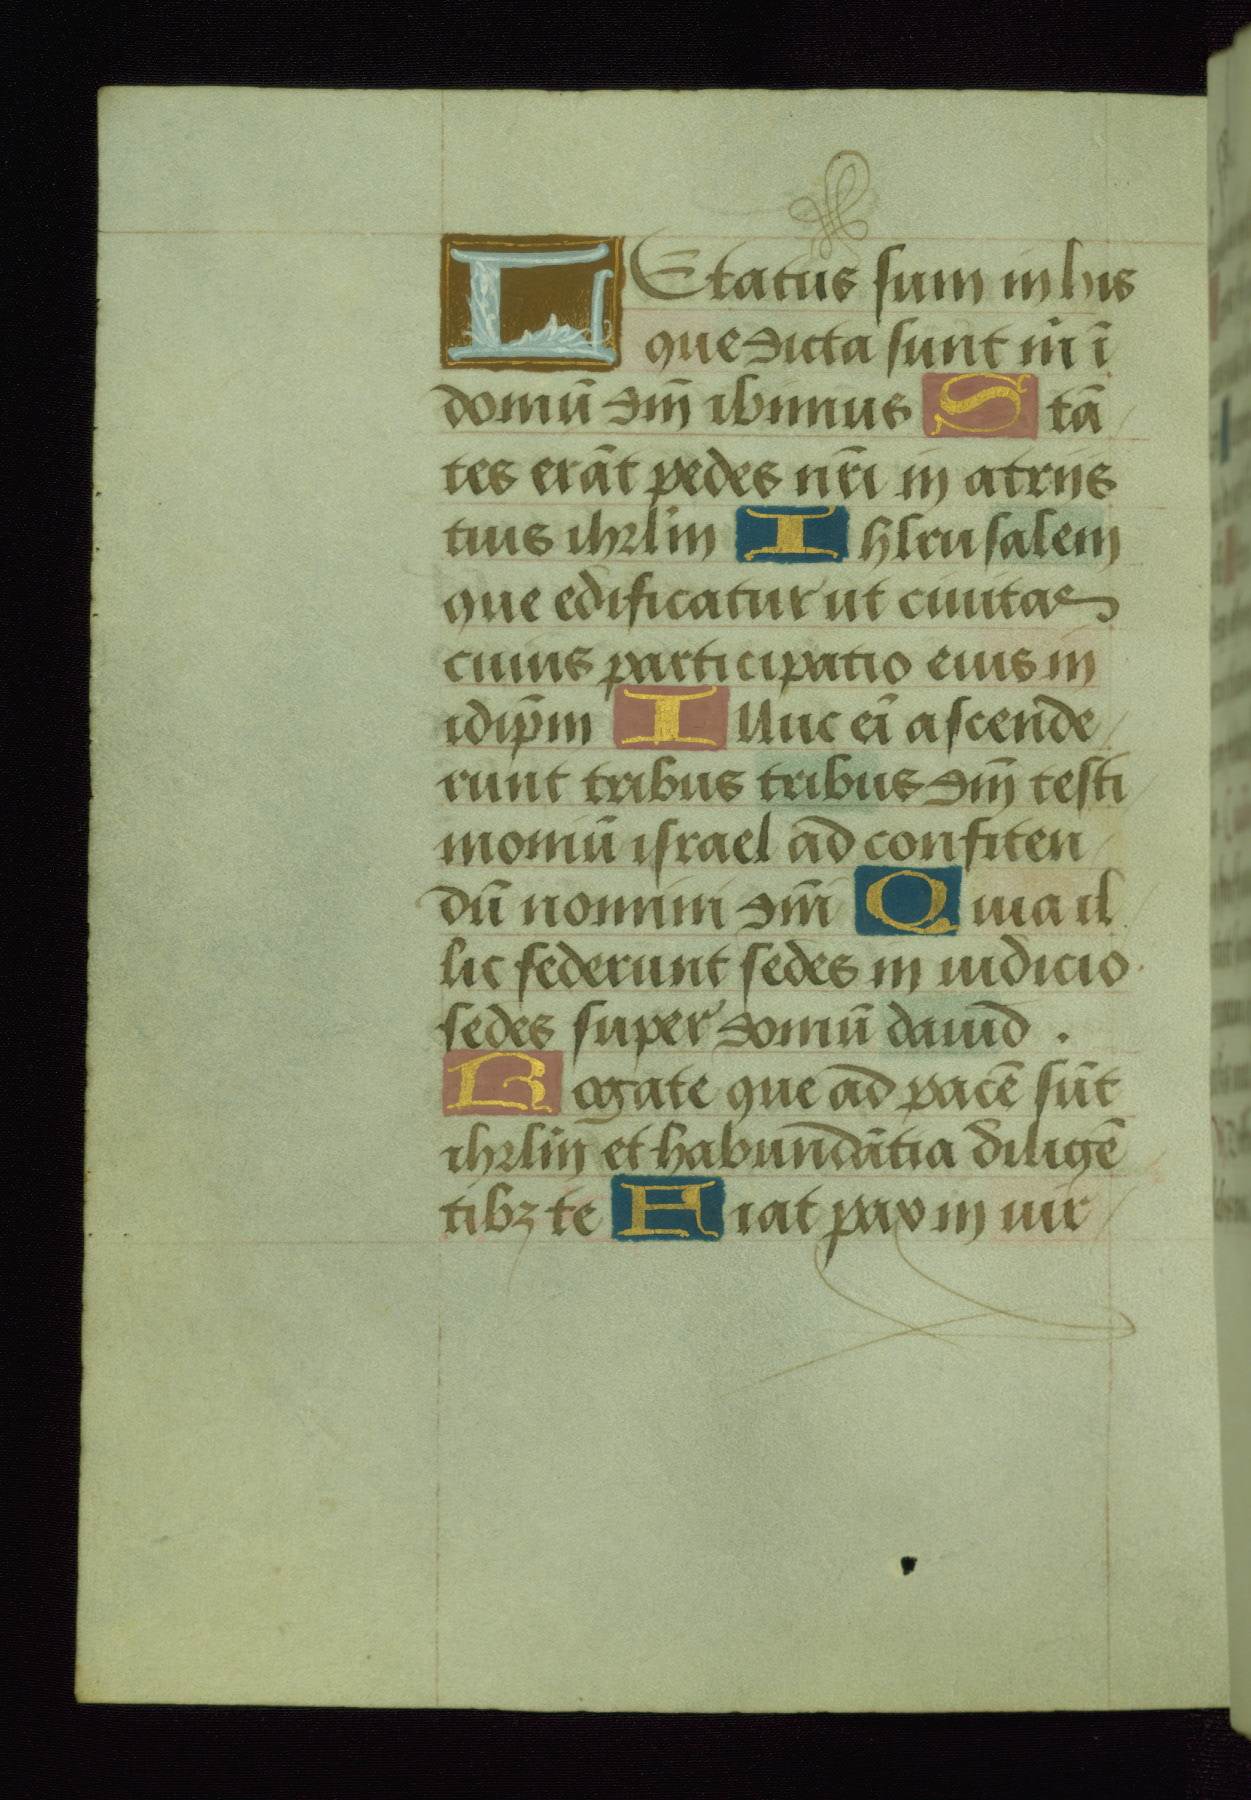 LEtatus sum in his
que dicta sunt m̅ i̅
domū dn̄i ibimus Stā
tes erāt pedes nr̄i in atriis
tuis ihrl̄m Ihlrusalem
que edificatur ut ciuitas
cuius participatio eius in
idip̄m Illuc ei̅ ascende
runt tribus tribus dn̄i testi
moniū israel ad confiten
dū nomini dn̄i Quia il
lic sederunt sedes in iudicio
sedes super domū dauid .
Rogate que ad pacē sūt
ihrl̄m et habundātia diligē
tibꝫ te Fiat pax in uir